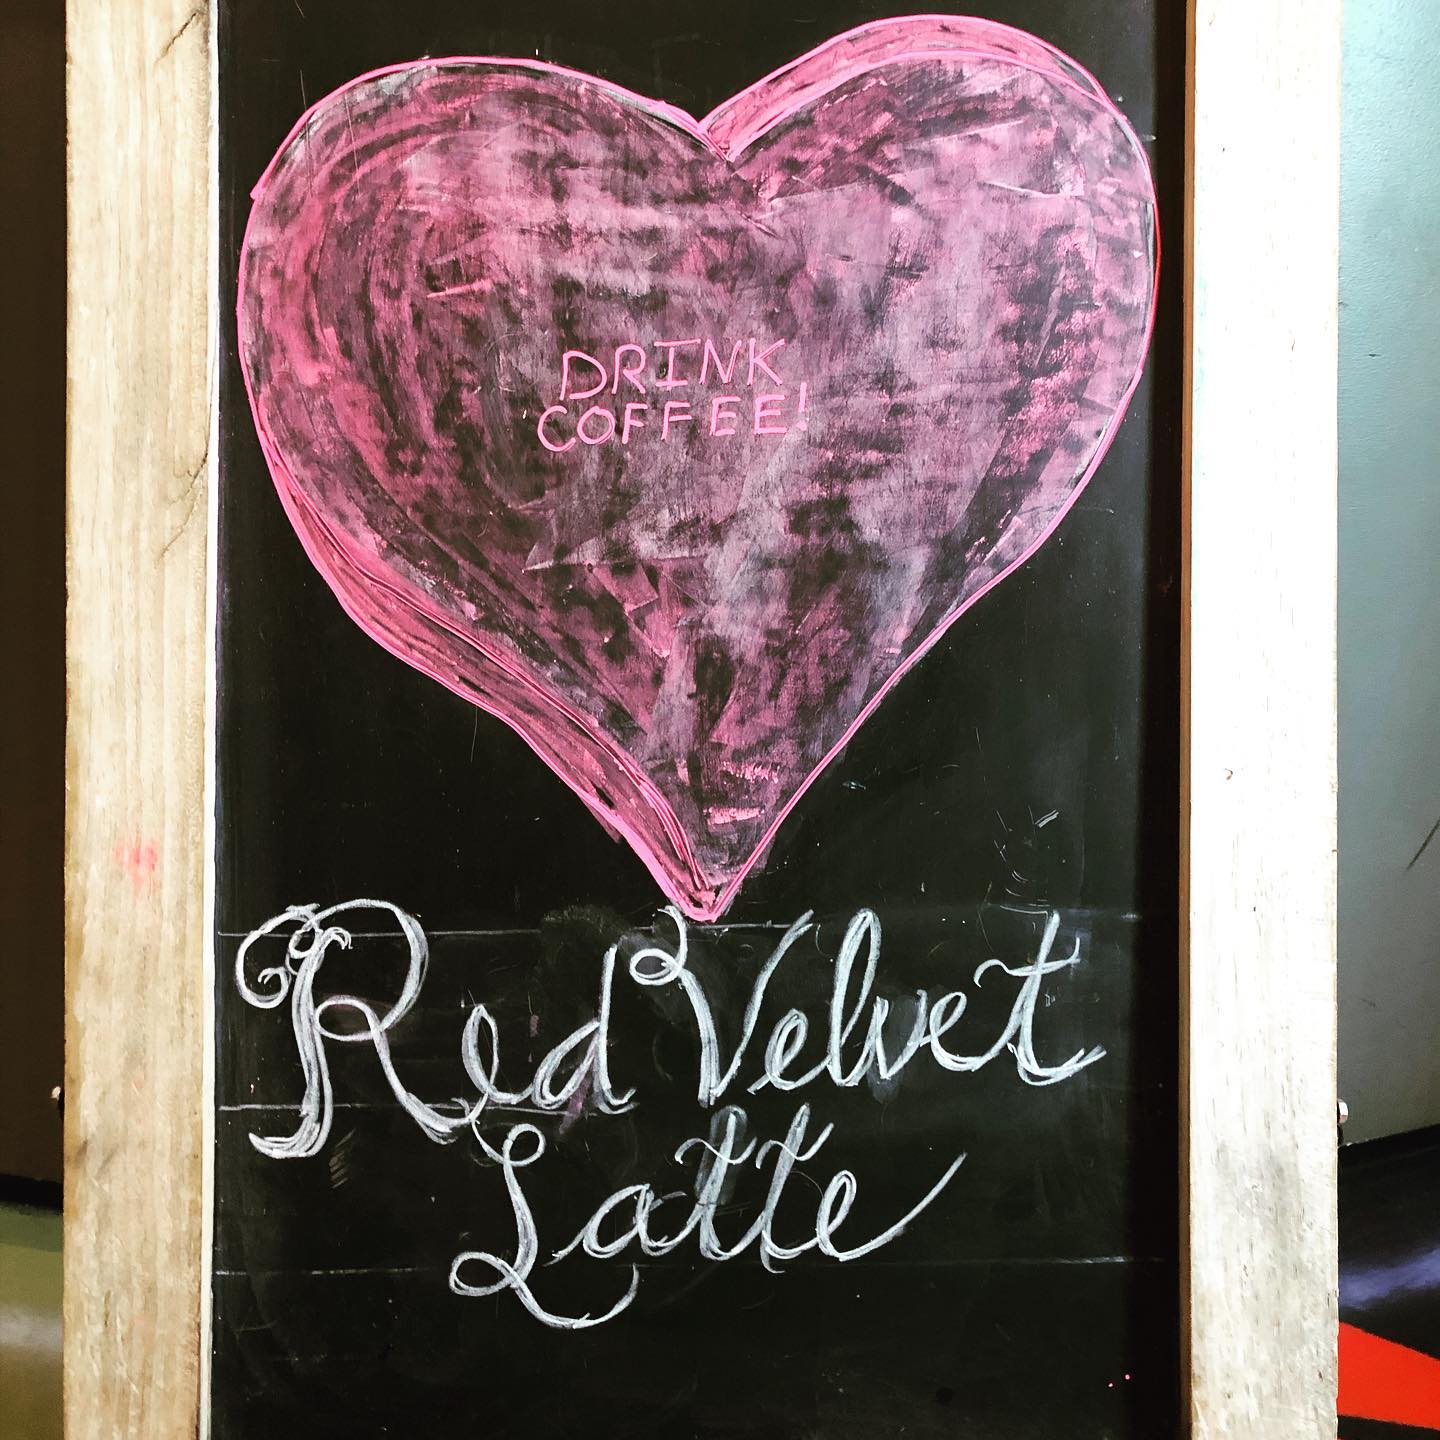 DRINK
COFFEE!
Red Velvet
Latte